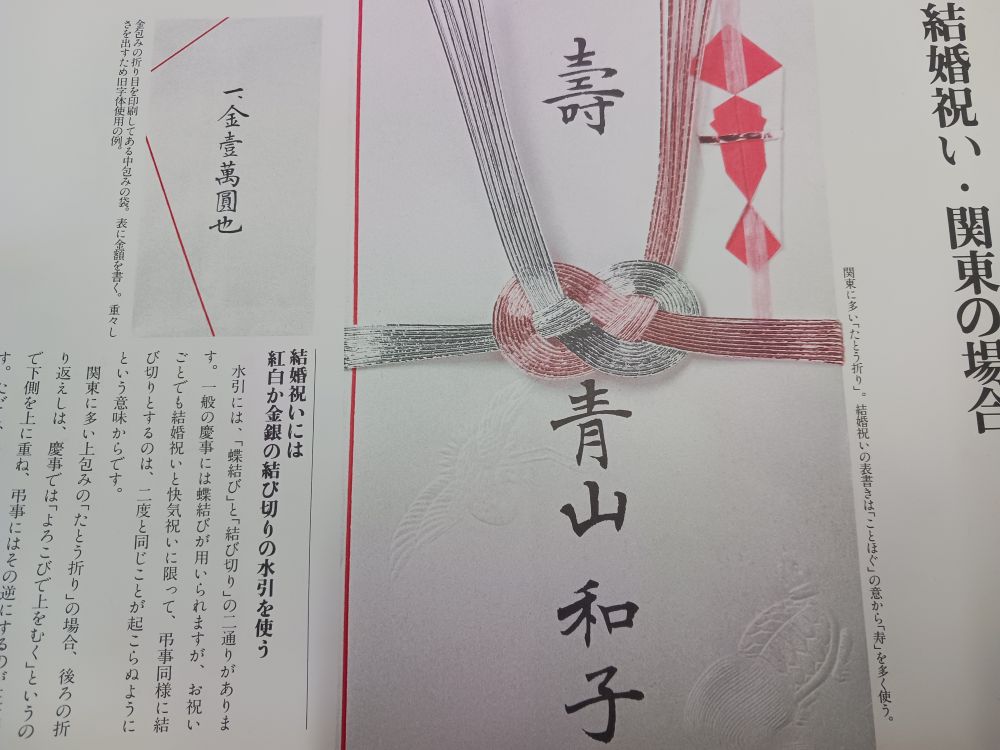 結婚祝い・関東の場合
関東に多い「たとう折り」。結婚祝いの表書きは「ことほぐ」の意から「寿」を多く使う。
壽
青山和子
一、金壹萬圓也
金包みの折り目を印刷してある中包みの袋。表に金額を書く。重々し
さを出すため旧字体使用の例。
結婚祝いには
紅白か金銀の結び切りの水引を使う
水引には、「蝶結び」と「結び切り」の二通りがありま
す。一般の慶事には蝶結びが用いられますが、お祝い
ごとでも結婚祝いと快気祝いに限って、弔事同様に結
び切りとするのは、二度と同じことが起こらぬように
という意味からです。
関東に多い上包みの「たとう折り」の場合、後ろの折
り返えしは、慶事では「よろこびで上をむく」というの
で下側を上に重ね、弔事にはその逆にするのが
す。ただ